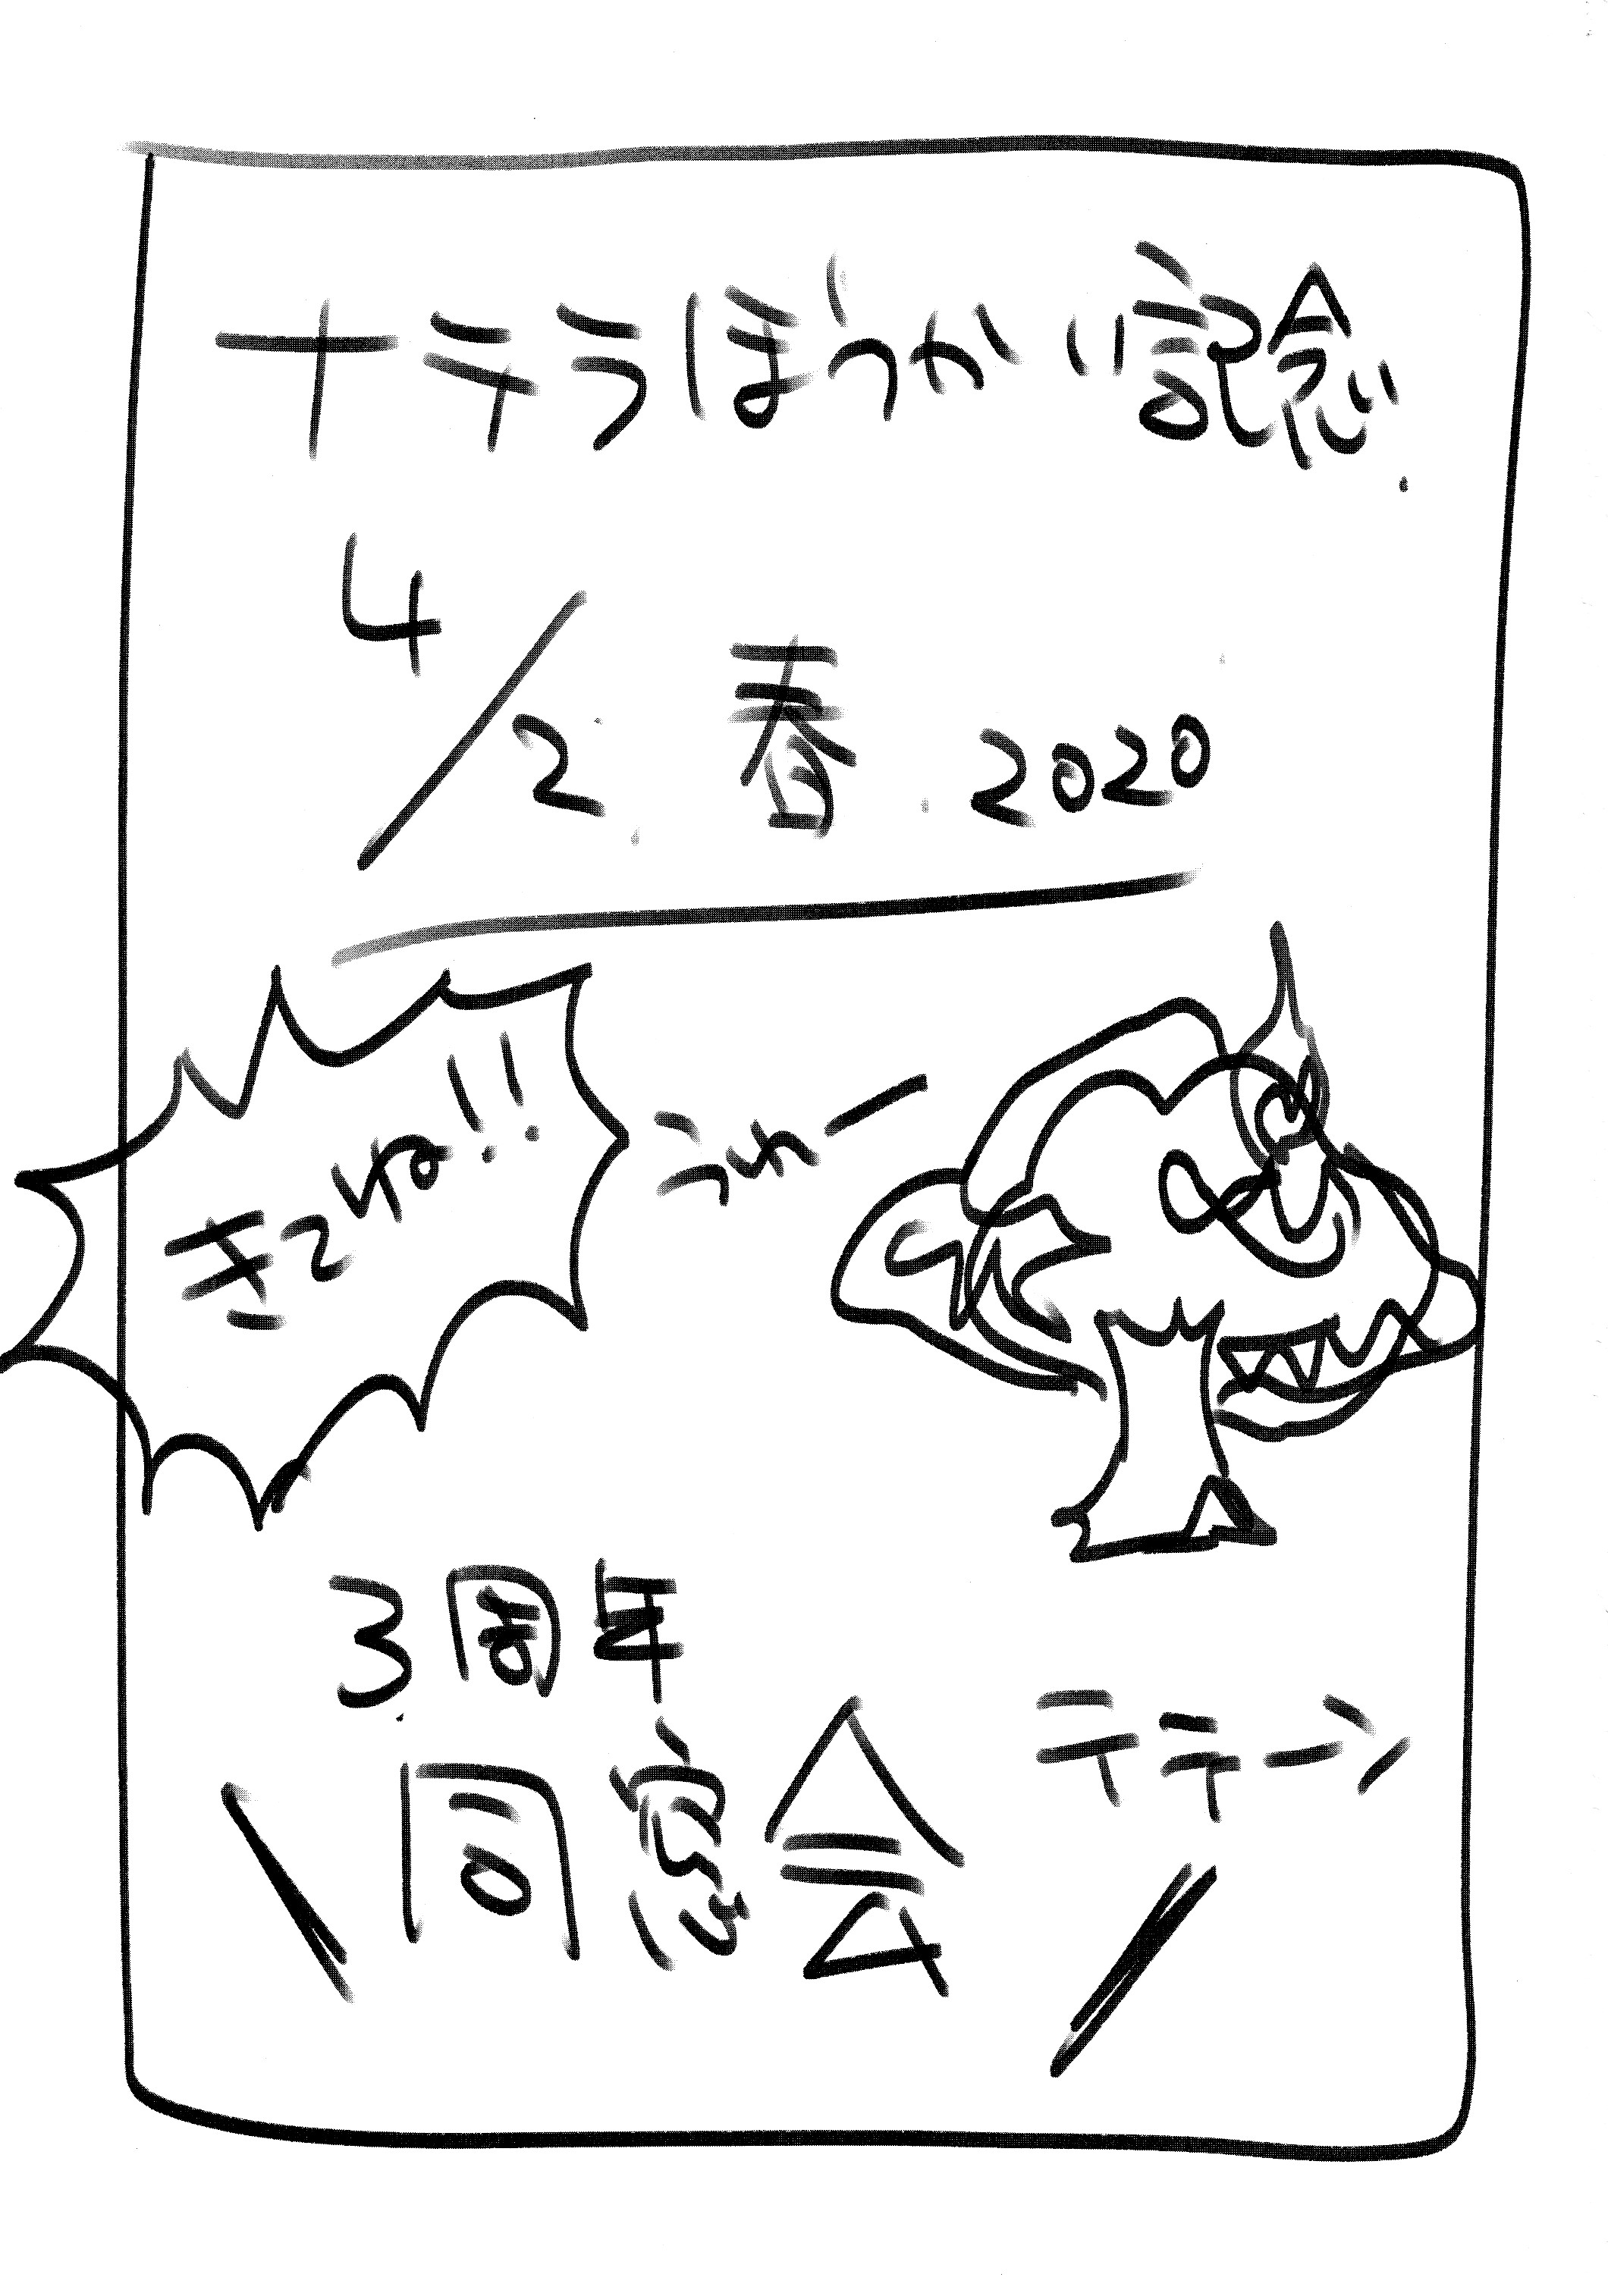 十テラほうかい記念
4/2 春 2020
きてね!!
うわー
3周年
同窓会
テテーン